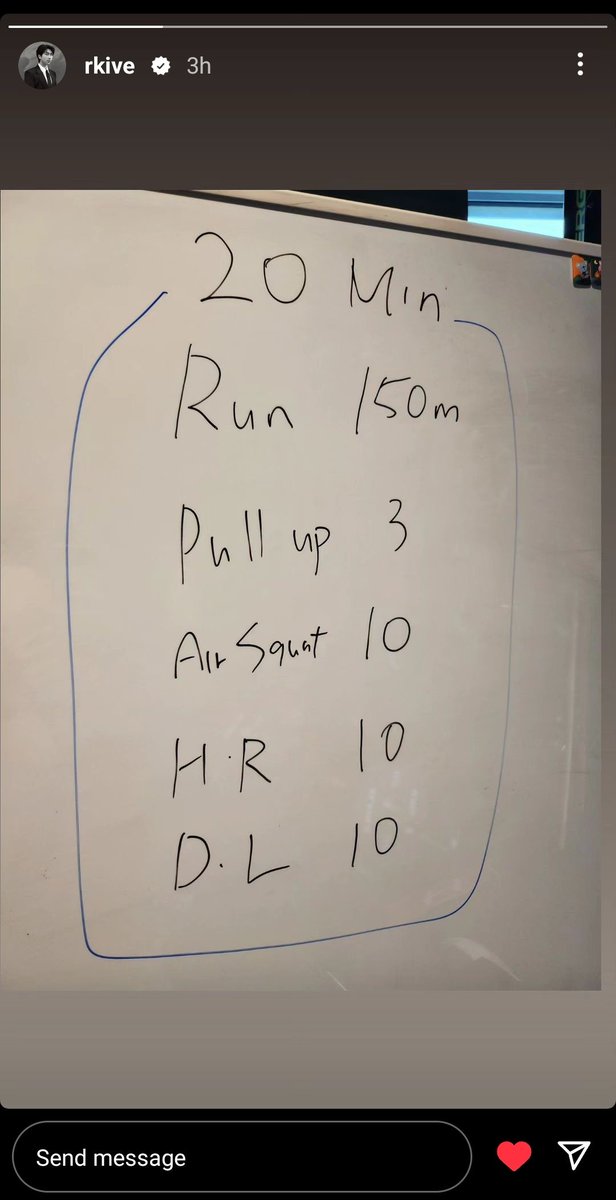 rkive 3h
20 Min
Run 150m
Pull up 3
Air Squat 10
H.R 10
D.L 10
Send message